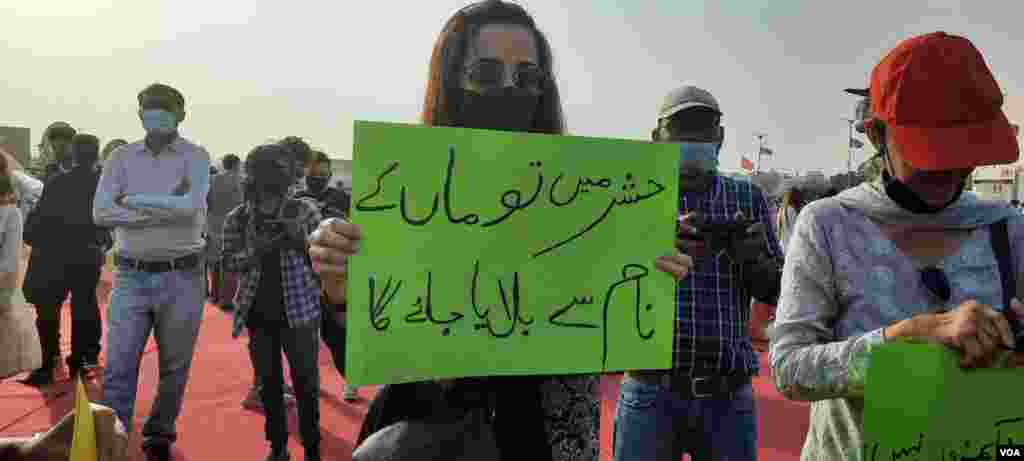 حشر میں تو ماں کے
نام سے بلایا جائے گا
نہیں
VOA